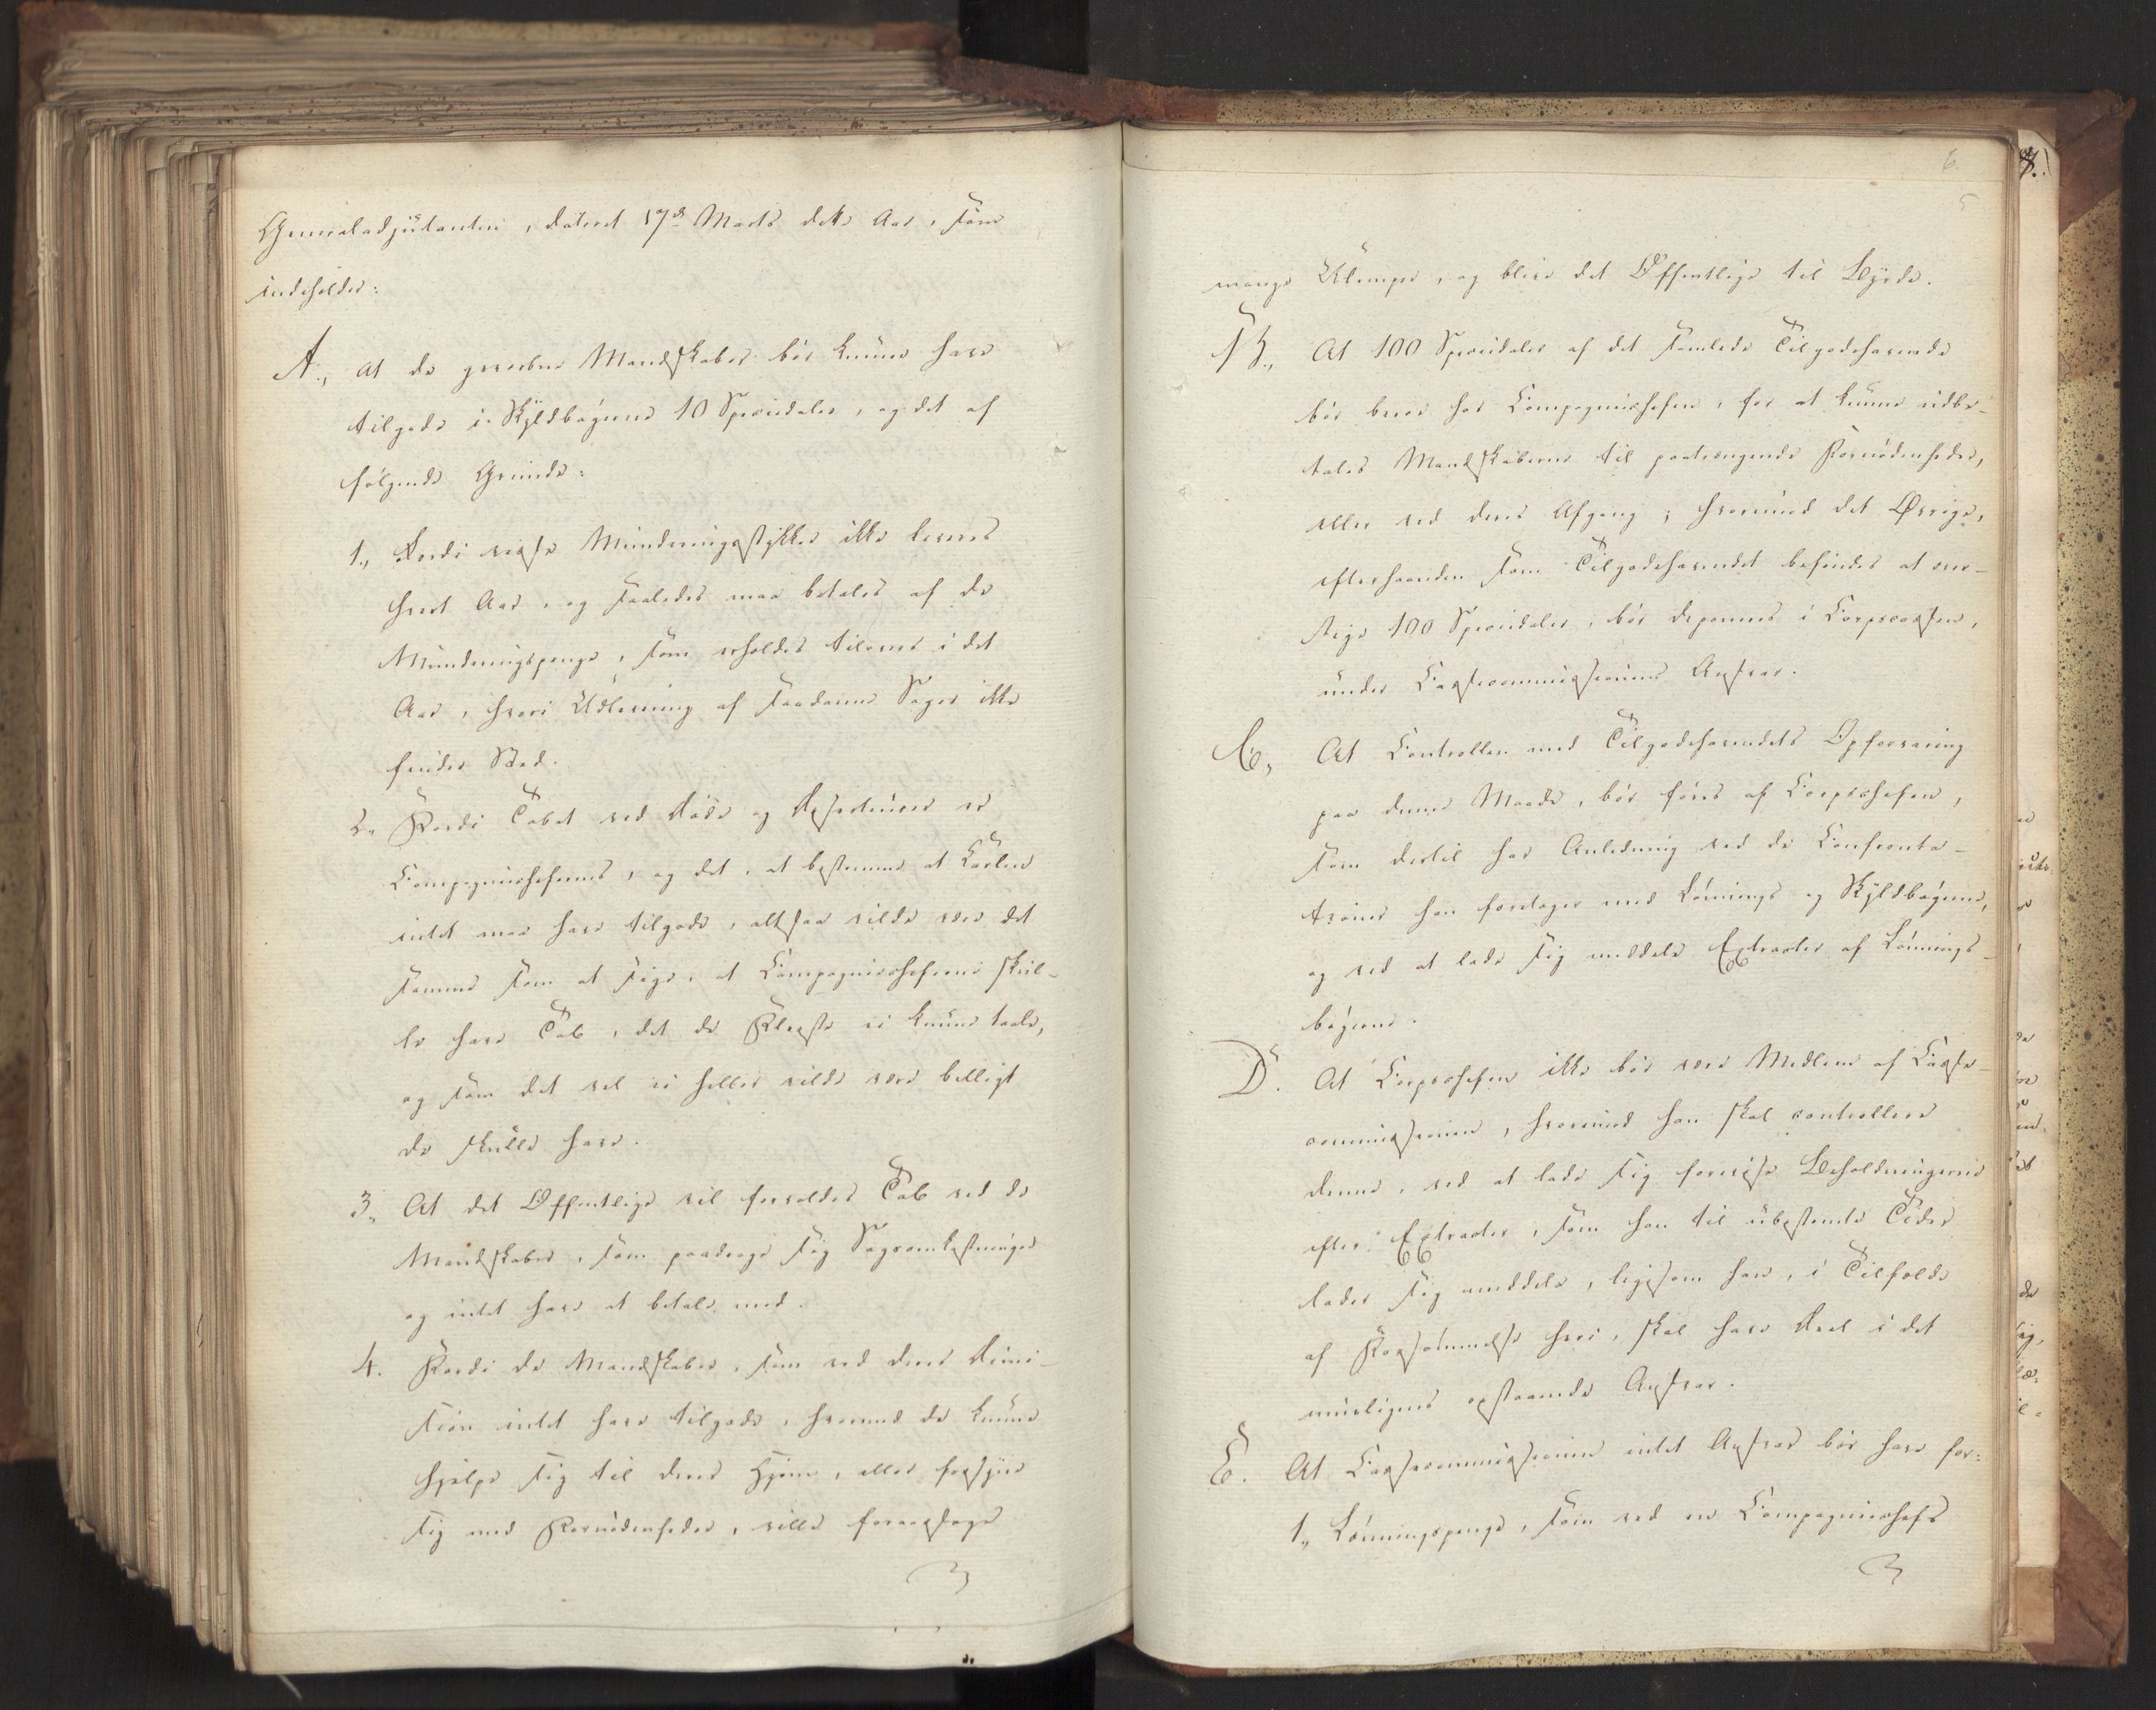 Generaladjutanten, dateret 17de Marts dette Aar, som
indeholder:
A., at de gevorbne Mandskaber bør kunne have
tilgode i Skyldbøgerne 10 Speciedaler, og det af
følgende Grunde:
1., Fordi visse Munderingsstykker ikke leveres
hvert Aar, og saaledes maa betales af de
Munderingspenge, som erholdes tilovers i det
Aar, hvori Udlevering af saadanne Sager ikke
finder Sted.
2., Fordi Tabet ved Døde og Deserteurer er
Compagniechefernes, og det, at bestemme at Karlen
intet maa have tilgode, altsaa vilde være det
samme som at sige, at Compagniecheferne skul-
le have Tab, det de Fleste ei kunne taale,
og som det vel ei heller vilde være billigt
de skulle have.
3., At det Offentlige vil forvoldes Tab ved de
Mandskaber, som paadrage sig Sagsomkostninger
og intet have at betale med.
4. Fordi de Mandskaber, som ved deres Dimi-
sion intet have tilgode, hvormed de kunne
hjelpe sig til deres Hjem, eller forsyne
sig med Fornødenheder, ville foraarsage
6.
5
mange Ulemper, og blive det Offentlige til Byrde.
B., At 100 Speciedaler af det samlede Tilgodehavende
bør beroe hos Compagniechefen, for at kunne udbe-
tales Mandskaberne til paatrængende Fornødenheder,
eller ved deres Afgang; hvorimod det Øvrige,
efterhaanden som Tilgodehavendet befindes at over-
stige 100 Speciedaler, bør deponeres i Corpscassen,
under Cassecommissionens Ansvar.
C., At Controllen med Tilgodehavendets Opbevaring
paa denne Maade, bør føres af Corpschefen,
som dertil har Anledning ved de Confronta-
tioner han foretager med Lønnings og Skyldbøgerne,
og ved at lade sig meddele Extracter af Lønnings-
bøgerne.
D. At Corpschefen ikke bør være Medlem af Casse-
commissionen, hvorimod han skal controllere
denne, ved at lade sig forevise Beholdningerne
efter Extracter, som han til ubestemte Tider
lader sig meddele, ligesom han, i Tilfelde
af Forsømmelse heri, skal have Deel i det
mueligens opstaaende Ansvar.
E. At Cassecommissionen intet Ansvar bør have for:
1., Lønningspenge, som ved en Compagniechefs